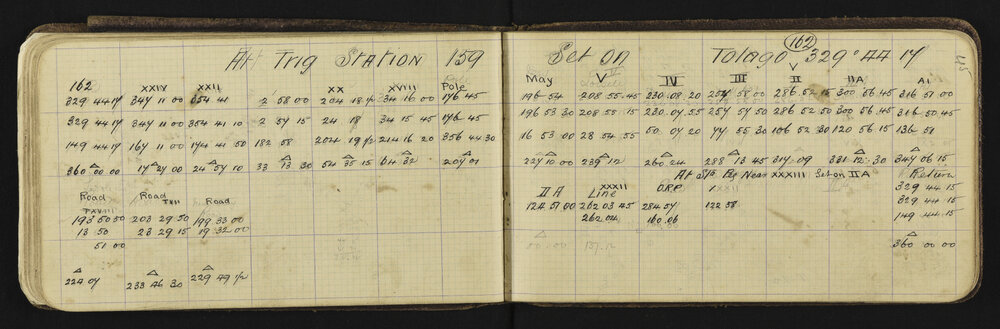 At Trig Station 159 Set on Tolago 329° 44 17
162
162 XXIV XXII XX XVIII Pole May V IV III II IIA A1
329 44 17 347 11 00 354 41 2 58 00 204 18 1/2 34 16 00 176 45 196 54 208 55 45 230 08 20 257 58 00 286 52 15 300 56 45 316 51 00
329 44 17 347 11 00 354 41 10 2 57 15 24 18 34 15 45 176 45 196 53 30 208 55 15 230 07 55 257 57 50 286 52 50 300 56 45 316 50 45
149 44 17 167 11 00 174 41 50 182 58 204 19 1/2 214 16 20 356 44 30 16 53 00 28 54 55 50 07 20 77 55 30 106 52 30 120 56 15 136 51
360 00 00 17 27 00 24 57 10 33 13 30 54 35 15 64 32 207 01 227 10 00 239 12 260 24 288 13 45 317 09 331 12 30 347 06 15
At 2/5 Peg Near XXXIII Set on IIA Return
Road Road Road IIA Line XXXII ORP XXII 329 44 15
TXVIII TXII
193 50 50 203 29 50 199 33 00 124 57 00 262 03 45 284 57 122 58 329 44 15
13 50 23 29 15 19 32 00 262 04 160 06 149 44 15
51 00 360 00 00
224 07 233 46 30 229 49 1/2